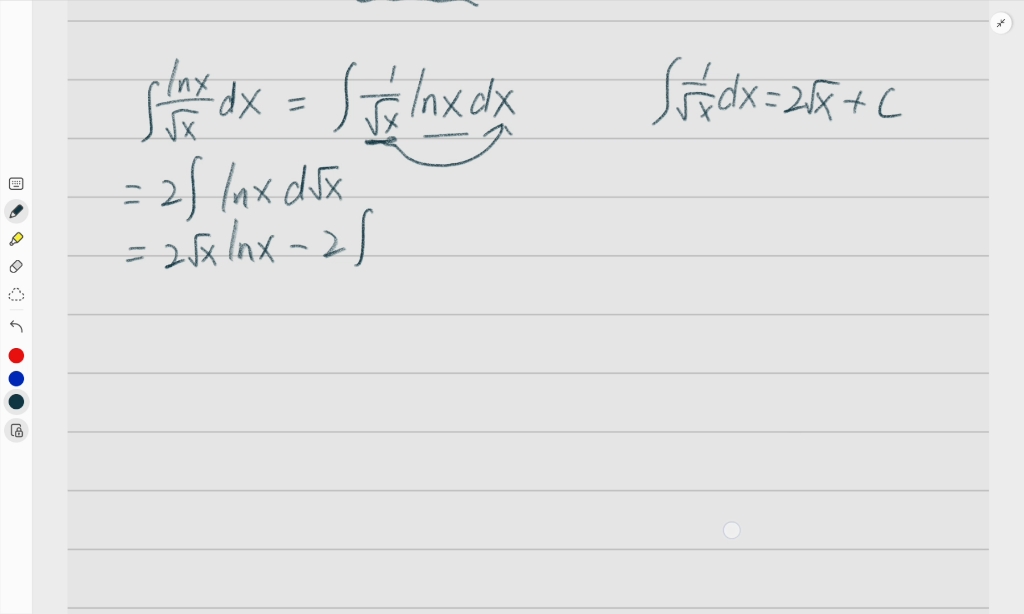 ∫ lnx/√x dx = ∫ 1/√x lnx dx
∫ 1/√x dx = 2√x + C
= 2∫ lnx d√x
= 2√x lnx − 2∫